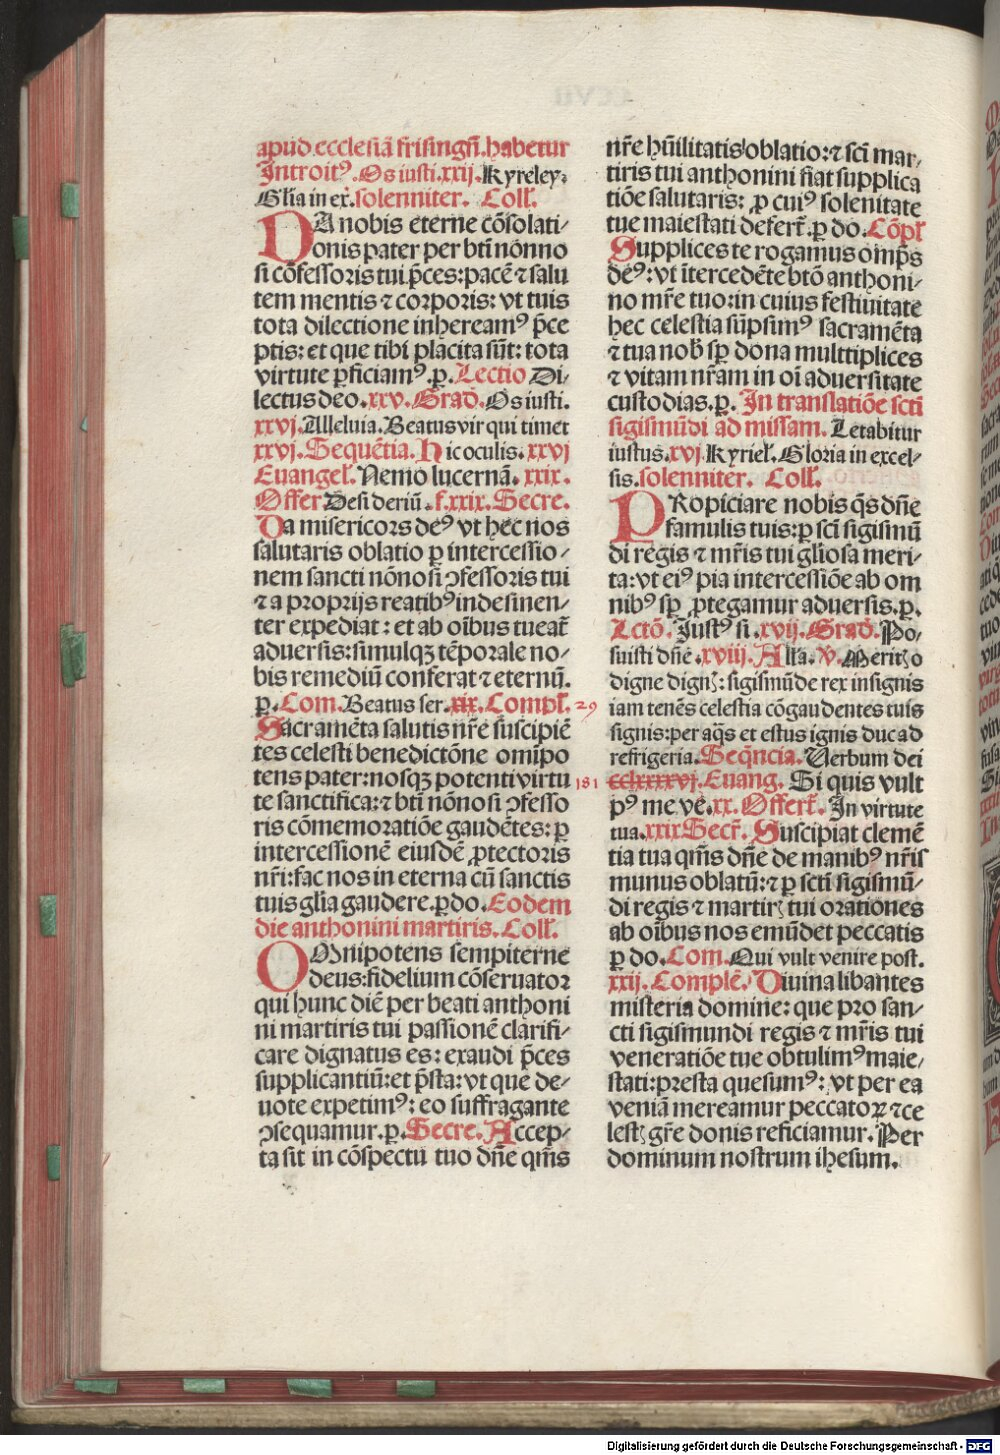 apud ecclesiā frisingń. habetur
Introitꝰ. Os iusti. xxij. Kyreley.
Gl̄ia in ex. solenniter. Coll̄.
DA nobis eterne cōsolati⸗
onis pater per btī nōnno
si cōfessoris tui p̄ces: pacē ⁊ salu
tem mentis ⁊ corporis: vt tuis
tota dilectione inhereamꝰ p̄ce
ptis: et que tibi placita sūt: tota
virtute ꝑficiamꝰ. ꝑ. Lectio Di⸗
lectus deo. xxv. Grad̄. Os iusti.
xxvj. Alleluia. Beatus vir qui timet
xxvj. Sequētia. Hic oculis. xxvj
Euangel̄. Nemo lucernā. xxix.
Offer Desideriū. f. xxix. Secre.
Da misericors deꝰ vt hec nos
salutaris oblatio ꝑ intercessio⸗
nem sancti nōnosi ꝯfessoris tui
⁊ a proprijs reatibꝰ indesinen⸗
ter expediat: et ab oībus tueat̄
aduersis: simulqꝫ tēporale no⸗
bis remediū conferat ⁊ eternū.
ꝑ. Com. Beatus ser. xix. Compl̄. 29
Sacramēta salutis nr̄e suscipiē
tes celesti benedictōne omīpo
tens pater: nosqꝫ potenti virtu
te sanctifica: ⁊ btī nōnosi ꝯfesso
ris cōmemoratiōe gaudētes: ꝑ
intercessionē eiusdē ꝓtectoris
nr̄i: fac nos in eterna cū sanctis
tuis gl̄ia gaudere. ꝑ do. Eodem
die anthonini martiris. Coll̄.
OMnipotens sempiterne
deus: fidelium cōseruator
qui hunc diē per beati anthoni
ni martiris tui passionē clarifi⸗
care dignatus es: exaudi p̄ces
supplicantiū: et p̄sta: vt que de⸗
uote expetimꝰ: eo suffragante
ꝯsequamur. ꝑ. Secre. Accep⸗
ta sit in cōspectu tuo dn̄e qm̄s
nr̄e hūilitatis oblatio: ⁊ scī mar⸗
tiris tui anthonini fiat supplica
tiōe salutaris: ꝓ cuiꝰ solenitate
tue maiestati defert̄. ꝑ do. Cōpl̄
Supplices te rogamus omp̄s
deꝰ: vt ītercedēte btō anthoni⸗
no mr̄e tuo: in cuius festiuitate
hec celestia sūpsimꝰ sacramēta
⁊ tua nob̄ sꝑ dona multtiplices
⁊ vitam nr̄am in oī aduersitate
custodias. ꝑ. In translatiōe sctī
sigismūdi ad missam. Letabitur
iustus. xvj. Kyriel̄. Gloria in excel⸗
sis. solenniter. Coll̄.
PRopiciare nobis q̄s dn̄e
famulis tuis: ꝑ scī sigismū
di regis ⁊ mr̄is tui gl̄iosa meri⸗
ta: vt eiꝰ pia intercessiōe ab om
nibꝰ sꝑ ꝓtegamur aduersis. ꝑ.
Lctō. Justꝰ si. xvij. Grad̄. Po⸗
suisti dn̄e. xviii. All̄a. V̄. Meritꝫ o
digne dignꝫ: sigismūde rex insignis
iam tenēs celestia cōgaudentes tuis
signis: per aq̄s et estus ignis duc ad
refrigeria. Seqn̄cia. Verbum dei
181 cclxxxvj. Euang. Si quis vult
pꝰ me ve. xx. Offert̄. In virtute
tua. xxix Secr̄. Suscipiat clemē
tia tua qm̄s dn̄e de manibꝰ nr̄is
munus oblatū: ⁊ ꝑ sctī sigismū⸗
di regis ⁊ martirꝫ tui orationes
ab oībus nos emūdet peccatis
ꝑ do. Com. Qui vult venire post.
xxij. Complē. Diuina libantes
misteria domine: que pro san⸗
cti sigismundi regis ⁊ mr̄is tui
veneratiōe tue obtulimꝰ maie⸗
stati: presta quesumꝰ: vt per ea
veniā mereamur peccatoꝝ ⁊ ce
lestꝫ gr̄e donis reficiamur. Per
dominum nostrum ihesum.
Digitalisierung gefördert durch die Deutsche Forschungsgemeinschaft - DFG